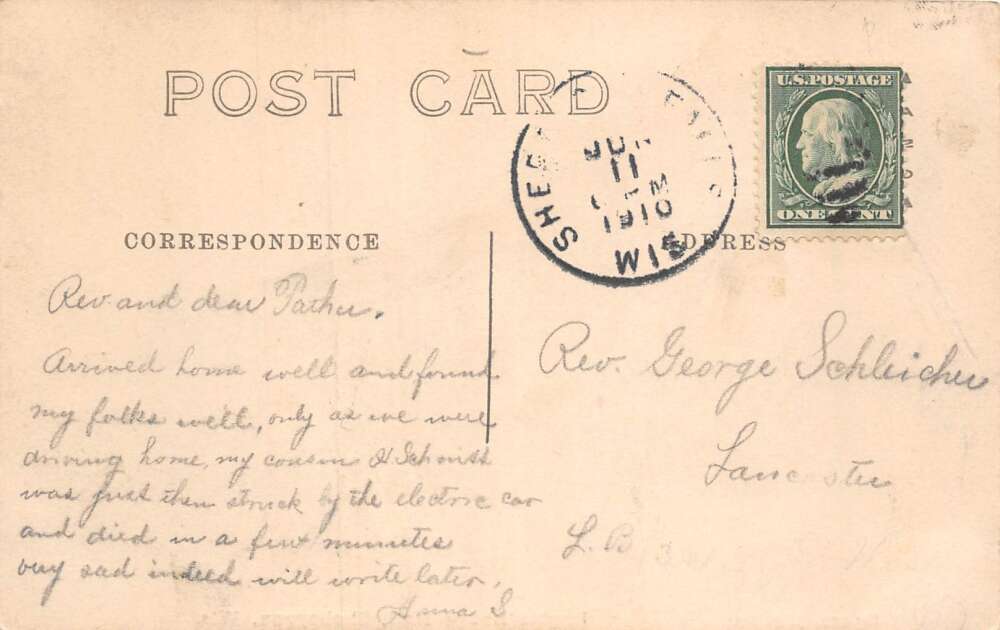 POST CARD
U.S. POSTAGE
ONE CENT
JUN
11
1910
WIS
CORRESPONDENCE
ADDRESS
Rev. and dear Father.
Arrived home well and found
my folks well, only as we were
driving home, my cousin H Schmitt
was just then struck by the electric car
and died in a few minutes
very sad indeed will write later.
Anna S.
Rev. George Schleicher
Lancaster
L. B